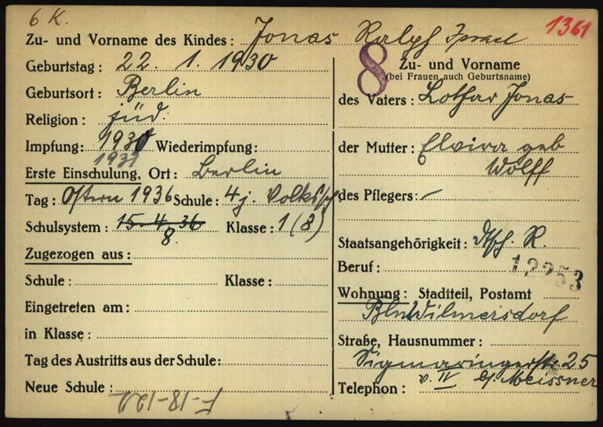 6 K.
1361
Zu- und Vorname des Kindes: Jonas Ralph Israel
Geburtstag: 22. 1. 1930
Geburtsort: Berlin
Religion: jüd.
Impfung: 1930 Wiederimpfung:
1931
Erste Einschulung, Ort: Berlin
Tag: Ostern 1936 Schule: 4 j. Volkssch.
Schulsystem: 15.4.36 Klasse: 1 (8)
8
Zugezogen aus:
Schule: Klasse:
Eingetreten am:
in Klasse:
Tag des Austritts aus der Schule:
Neue Schule:
F-18-122
8
Zu- und Vorname
(bei Frauen auch Geburtsname)
des Vaters: Lothar Jonas
der Mutter: Elvira geb
Wolff
des Pflegers: -
Staatsangehörigkeit: Dtsch. R.
Beruf:
12253
Wohnung: Stadtteil, Postamt
Bln Wilmersdorf
Straße, Hausnummer:
Sigmaringerstr. 25
Telephon: v. IV b/ Meissner